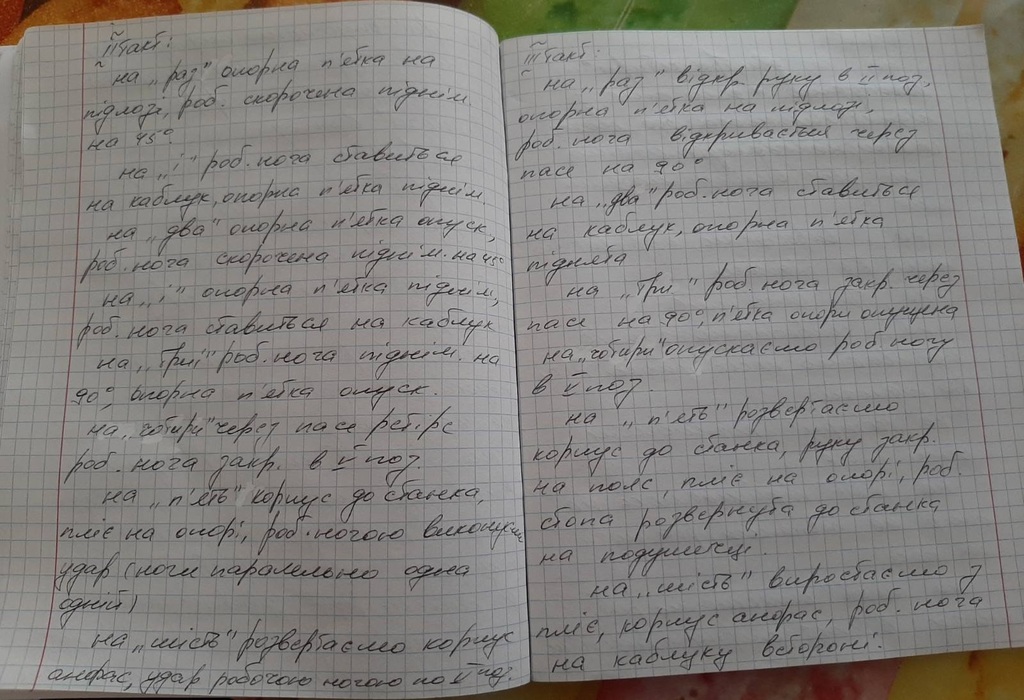 ІІ такт:
на „раз" опорна п'ятка на
підлозі, роб. скорочена піднім.
на 45°.
на „і" роб. нога ставиться
на каблук, опорна п'ятка піднім.
на „два" опорна п'ятка опуск,
роб. нога скорочена піднім. на 45°
на „і" опорна п'ятка піднім,
роб. нога ставиться на каблук
на „три" роб. нога піднім. на
90°, опорна п'ятка опуск.
на „чотири" через пасе ретіре
роб. нога закр. в V поз.
на „п'ять" корпус до станка,
пліє на опорі, роб. ногою виконуєм
удар (ноги паралельно одна
одній)
на „шість" розвертаємо корпус
анфас, удар робочою ногою по V поз.
ІІІ такт:
на „раз" відкр. руку в ІІ поз,
опорна п'ятка на підлозі,
роб. нога відкривається через
пасе на 90°
на „два" роб. нога ставиться
на каблук, опорна п'ятка
піднята
на „три" роб. нога закр. через
пасе на 90°, п'ятка опори опущена
на „чотири" опускаємо роб. ногу
в V поз.
на „п'ять" розвертаємо
корпус до станка, руку закр.
на пояс, пліє на опорі, роб.
стопа розвернута до станка
на подушечці.
на „шість" виростаємо з
пліє, корпус анфас, роб. нога
на каблуку встороні.